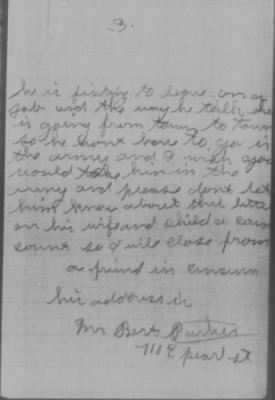 3.
he is fixing to leave on a
job and the way he talk he
is going from town to town
so he wont have to go in
the army and I wish you
would take him in the
army and please dont let
him know about this letter
on his wife and child a coun
count so I will close from
a friend in
his address is
Mr Bert Parker
711 E pearl st